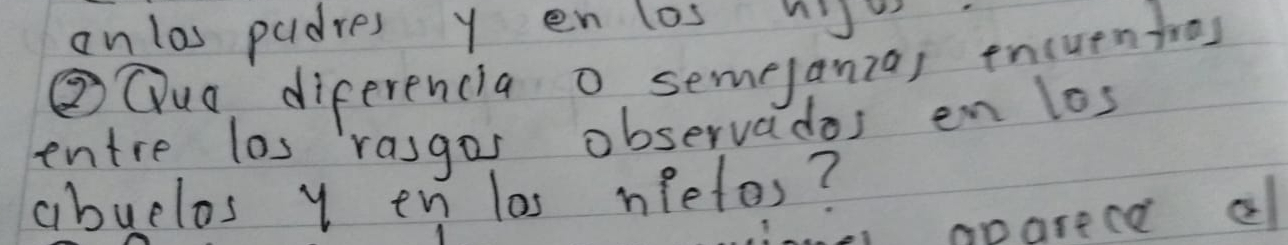 en los padres y en los hijos.
② Que diferencia o semejanzas encuentras
entre los rasgos observados en los
abuelos y en los nietos?
aparece el